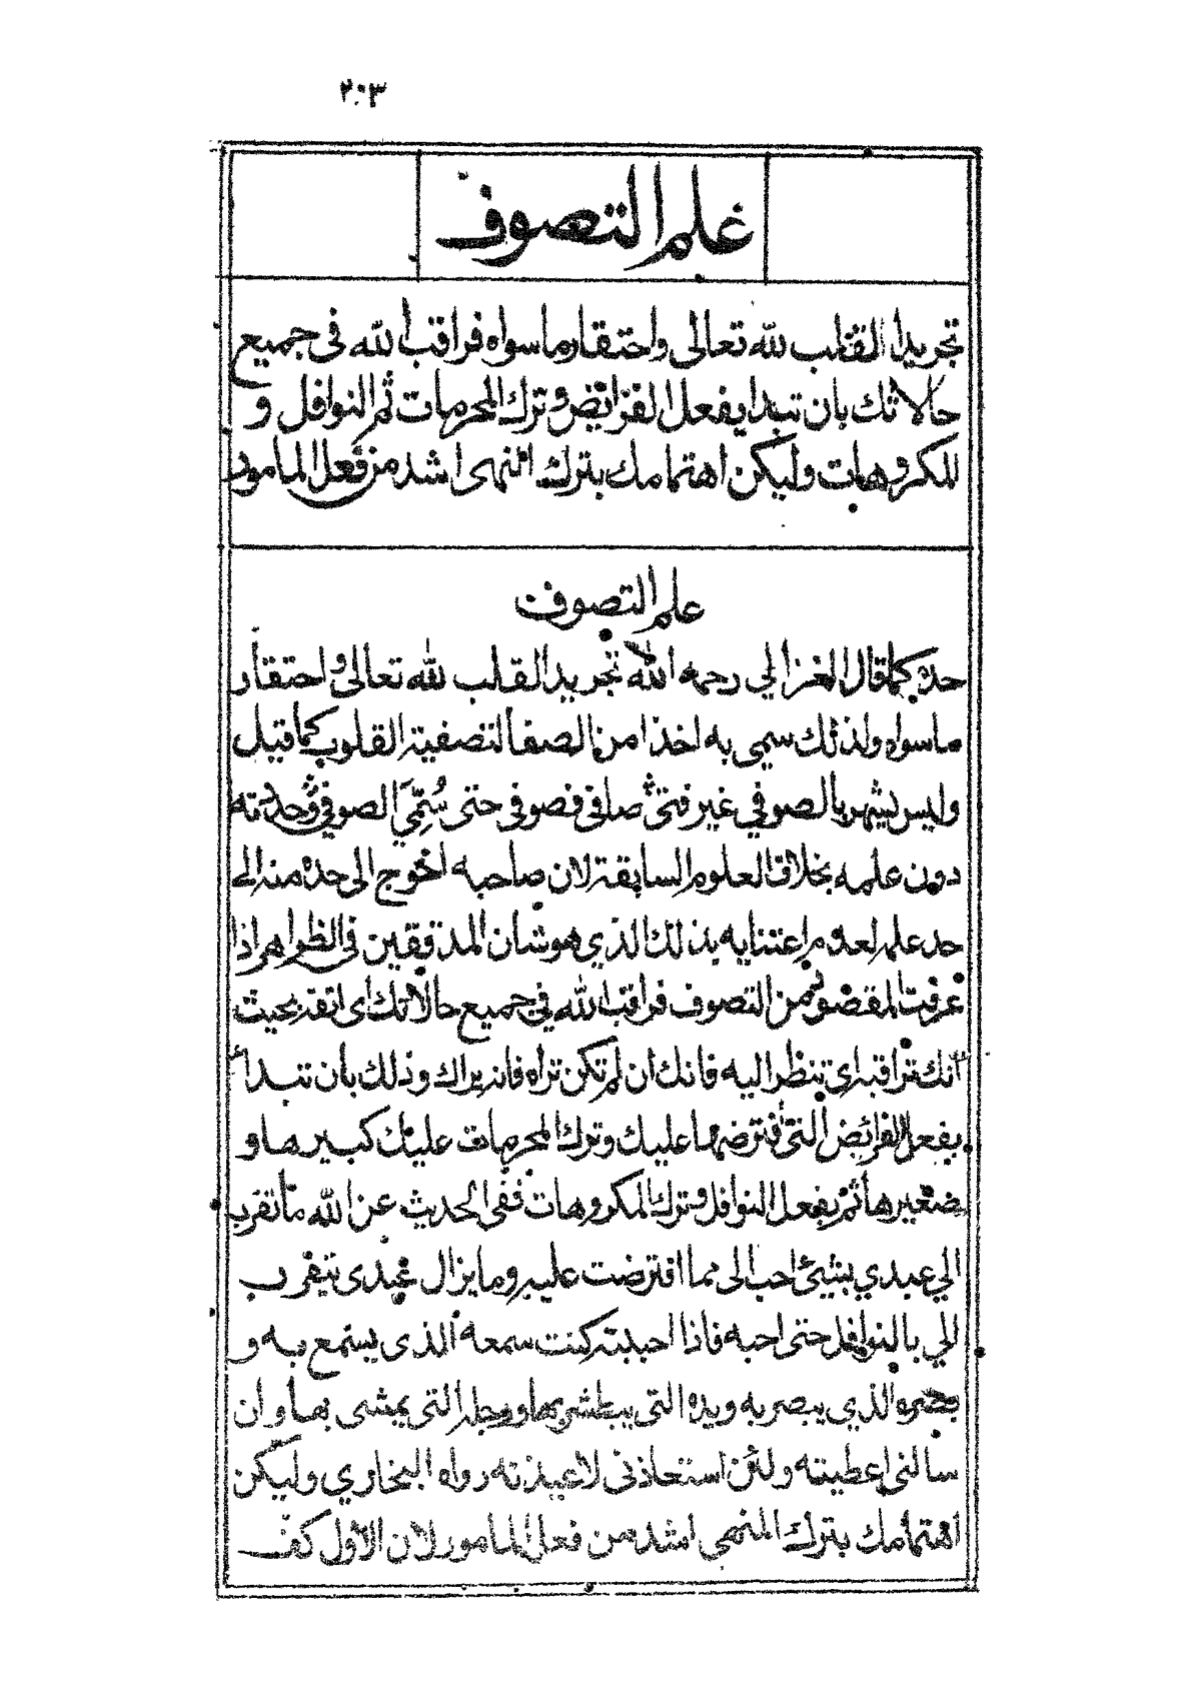 ٢٠٣
علم التصوف
تجريد القلب لله تعالى واحتقار ماسواه فراقب الله فى جميع
حالاتك بان تبدا بفعل الفرائض وترك المحرمات ثم النوافل و
المكروهات وليكن اهتمامك بترك المنهى اشد من فعل المامور
علم التصوف
حده كما قال الغزالي رحمه الله تجريد القلب لله تعالى واحتقار
ماسواه ولذلك سمى به اخذا من الصفا لتصفية القلوب كما قيل
وليس يشهر بالصوفي غير فتى صافى فصوفى حتى سُمِّيَ الصوفي وحددته
دون علمه بخلاف العلوم السابقة لان صاحبه احوج الى حده منه الى
حد علمه لعدم اعتنايه بذلك الذي هو شان المدققين فى الظواهر اذا
عرفت المقصود من التصوف فراقب الله في جميع حالاتك اى اتقه بحيث
انك تراقبه اى تنظر اليه فانك ان لم تكن تراه فانه يراك وذلك بأن تبدأ
بفعل الفرائض التى افترضها عليك وترك المحرمات عليك كبيرها و
صغيرها ثم بفعل النوافل وترك المكروهات ففى الحديث عن الله ما تقرب
الي عبدي بشيئ احب الى مما افترضت عليه وما يزال عبدى يتقرب
الي بالنوافل حتى احبه فاذا احببته كنت سمعه الذى يستمع به و
بصره الذي يبصر به ويده التى يبطش بها ورجله التى يمشى بها وان
سالنى اعطيته ولئن استعاذنى لاعيذنه رواه البخاري وليكن
اهتمامك بترك المنهى اشد من فعل المامور لان الأول كف